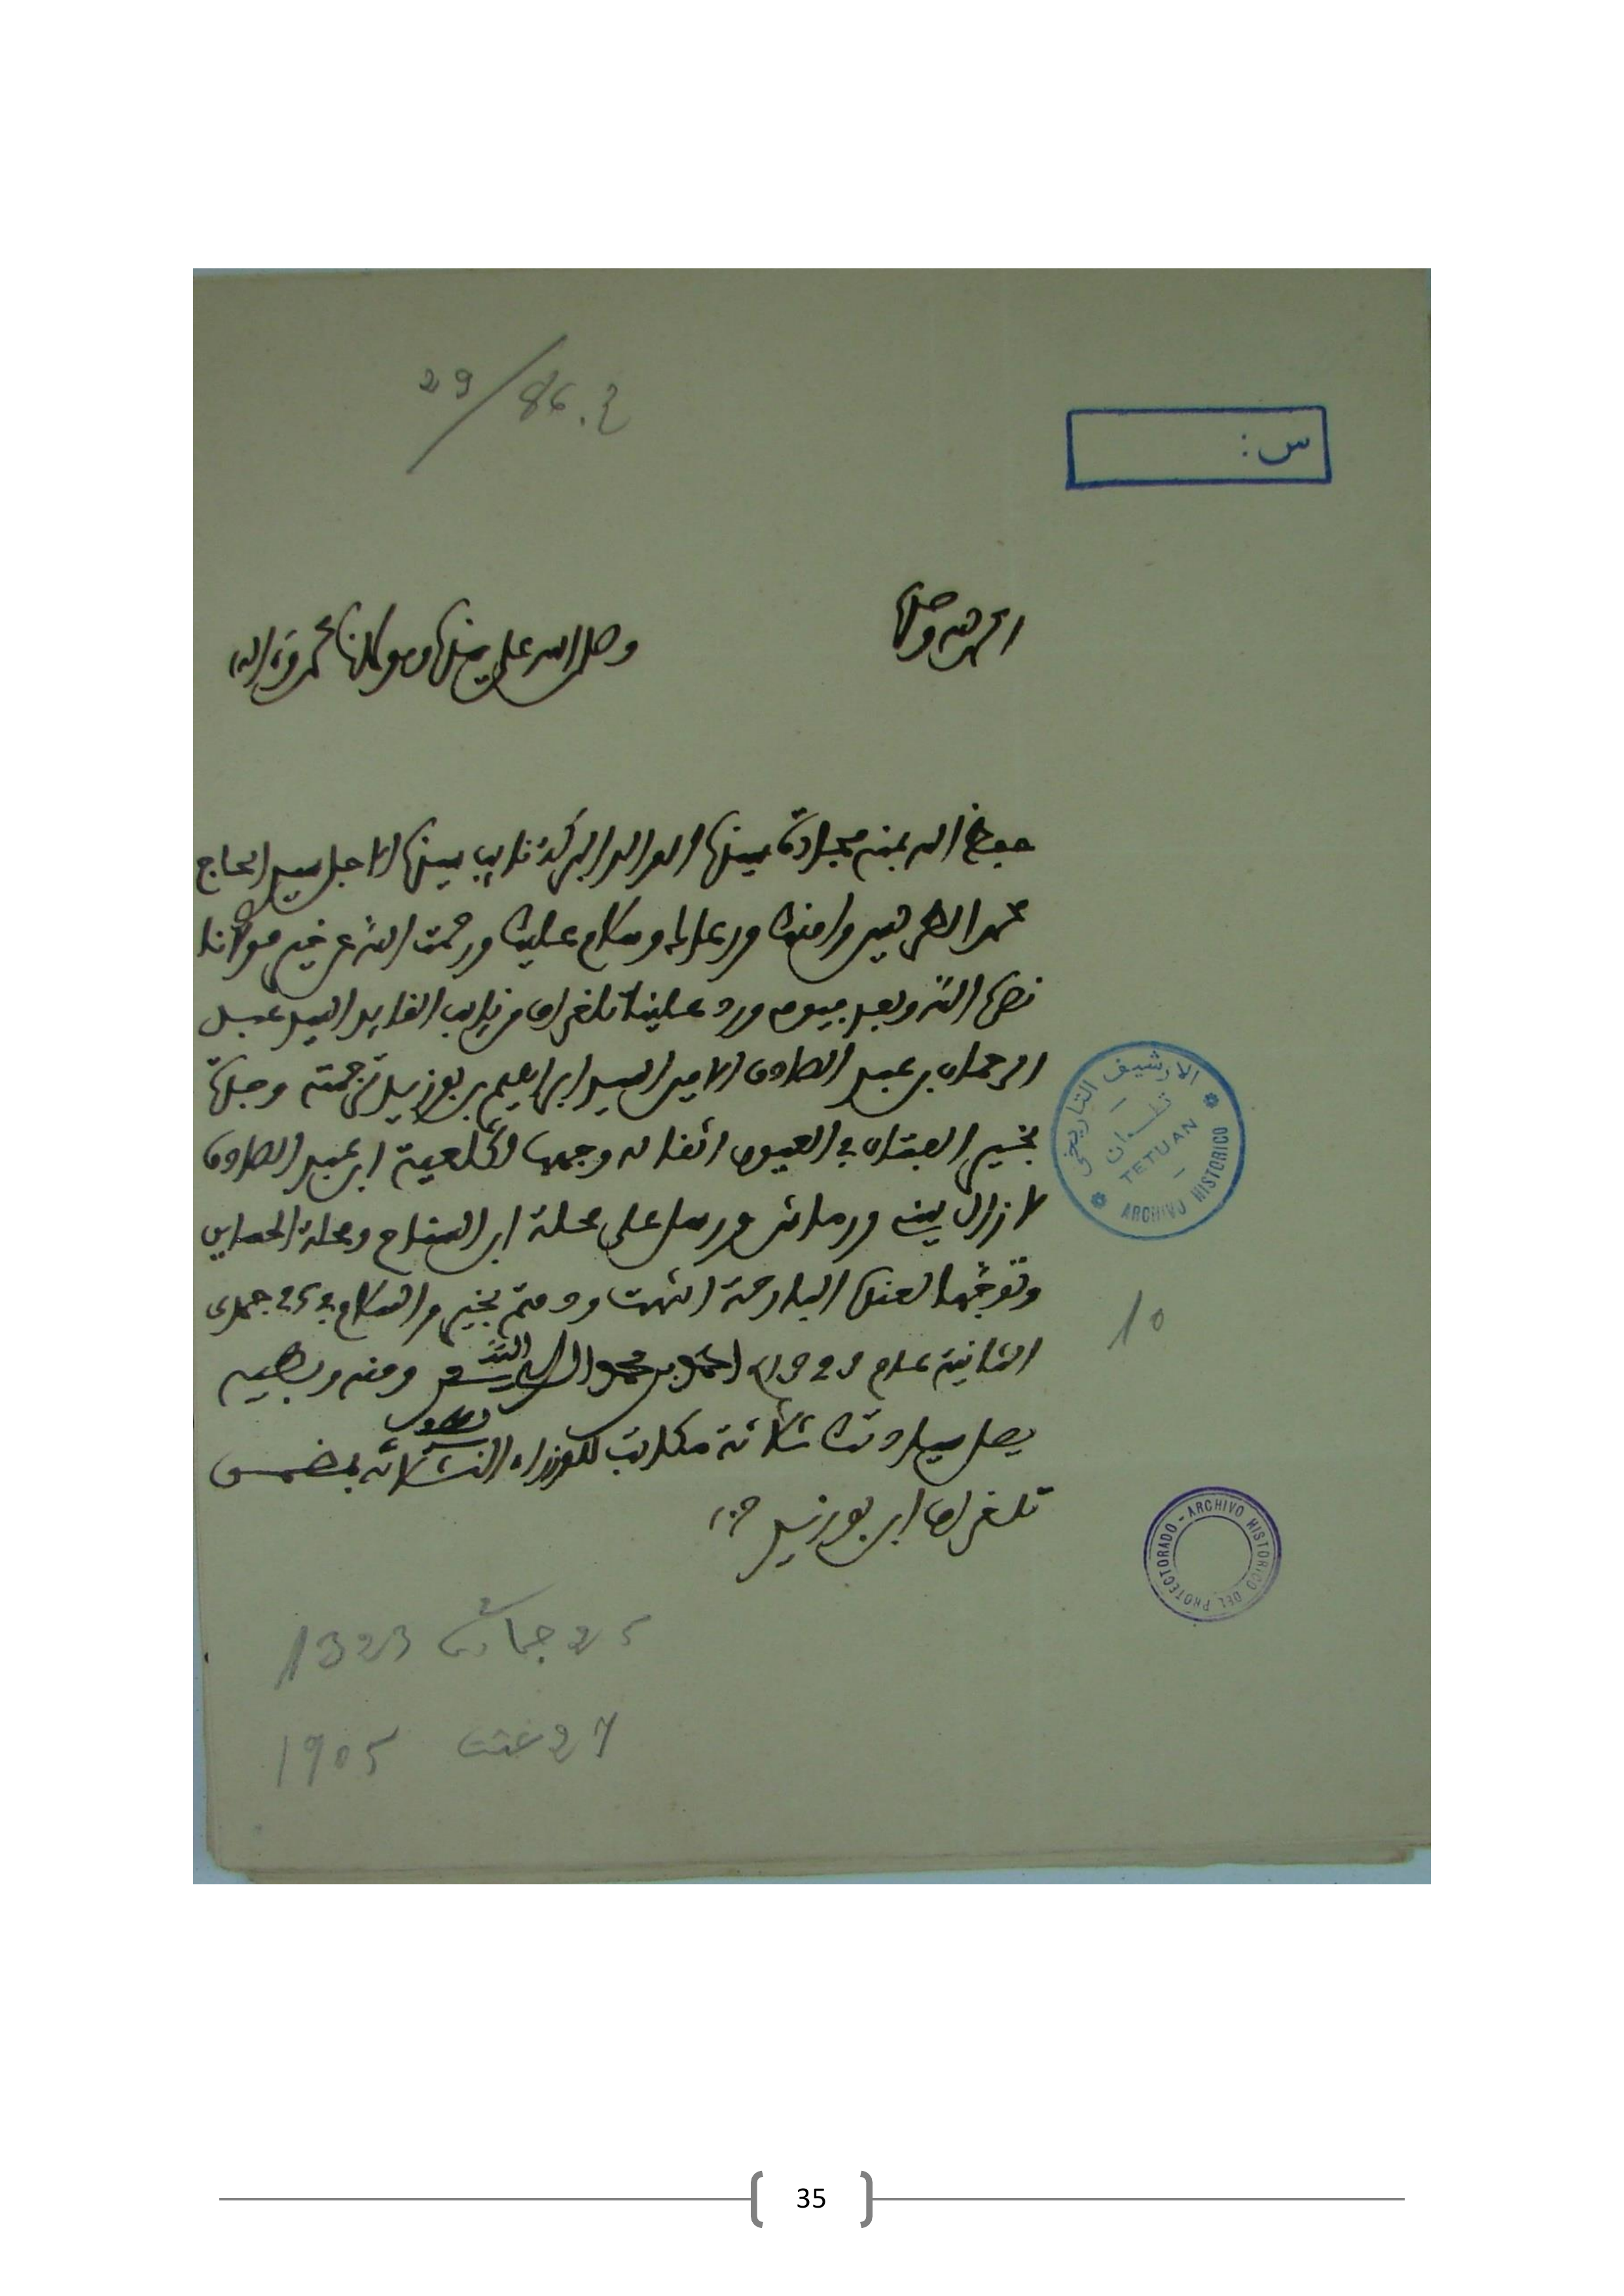 29/86.ع
س:
الحمد لله وحده
وصلى الله على سيدنا ومولانا محمد وءاله
حفظ الله بمنه مجادة سيدنا الوالد البركة نايب سيدنا الاجل سيدي الحاج
محمد الطريس وامنك ورعاك وسلام عليك ورحمت الله عن خير مولانا
نصره الله وبعد فيوم ورد علينا تلغراف من نايب القايد السيد عبد
الرحمان بن عبد الصادق الامين السيد ابراهيم بن بوزيد ترجمته وجدة
بخير الفتان في العيون اثقاله وجهها لكلعية ابن عبد الصادق
لا زال بينه ورماش ورسل على محلة ابن السناح ومحلة
وتوجهنا لعندك البارحة انتهت ودمتم بخير والسلام في 25 جمدى
الثانية عام 1323 احمد بن محمد ومنه وبطيه
يصل سيادتك ثلاثة مكاتب للوزراء الثلاثة بمضمن
تلغراف ابن بوزيد صح
الارشيف التاريخي
تطوان
TETUAN
ARCHIVO HISTORICO
10
PROTECTORADO - ARCHIVO HISTORICO DEL
25 جمادى 2 1323
27 غشت 1905
35